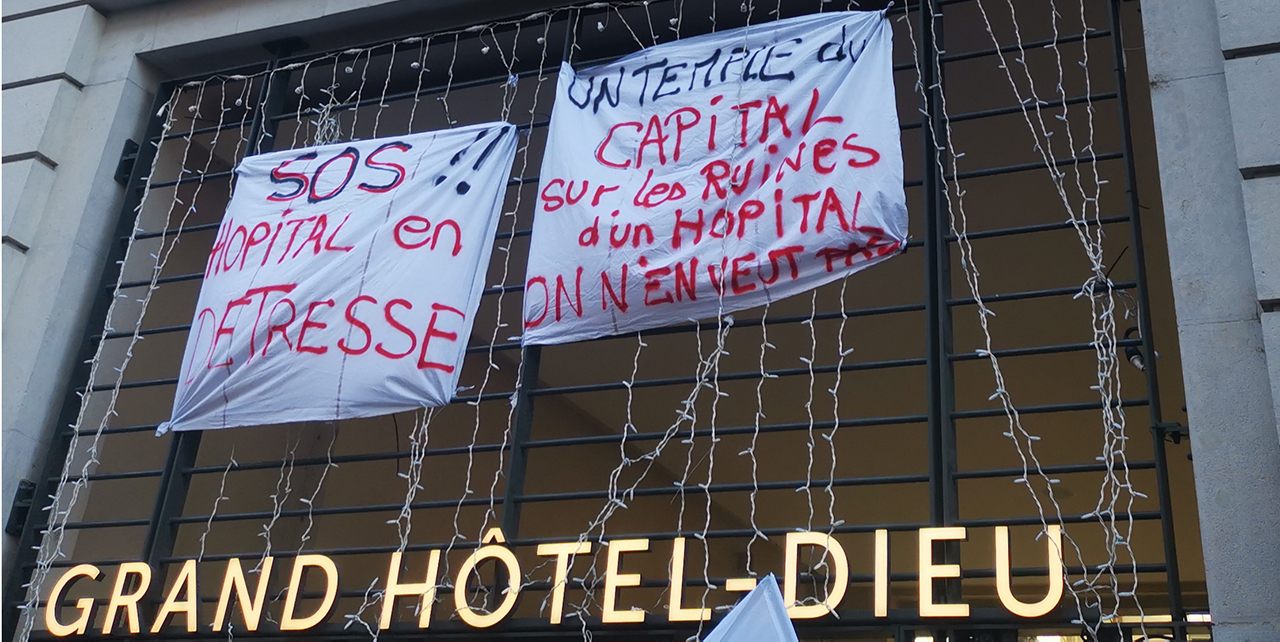 SOS !!
HOPITAL en
DETRESSE
UN TEMPLE du
CAPITAL
sur les RUiNes
d'un HOPITAL
ON N'EN VEUT PAS
GRAND HÔTEL-DIEU